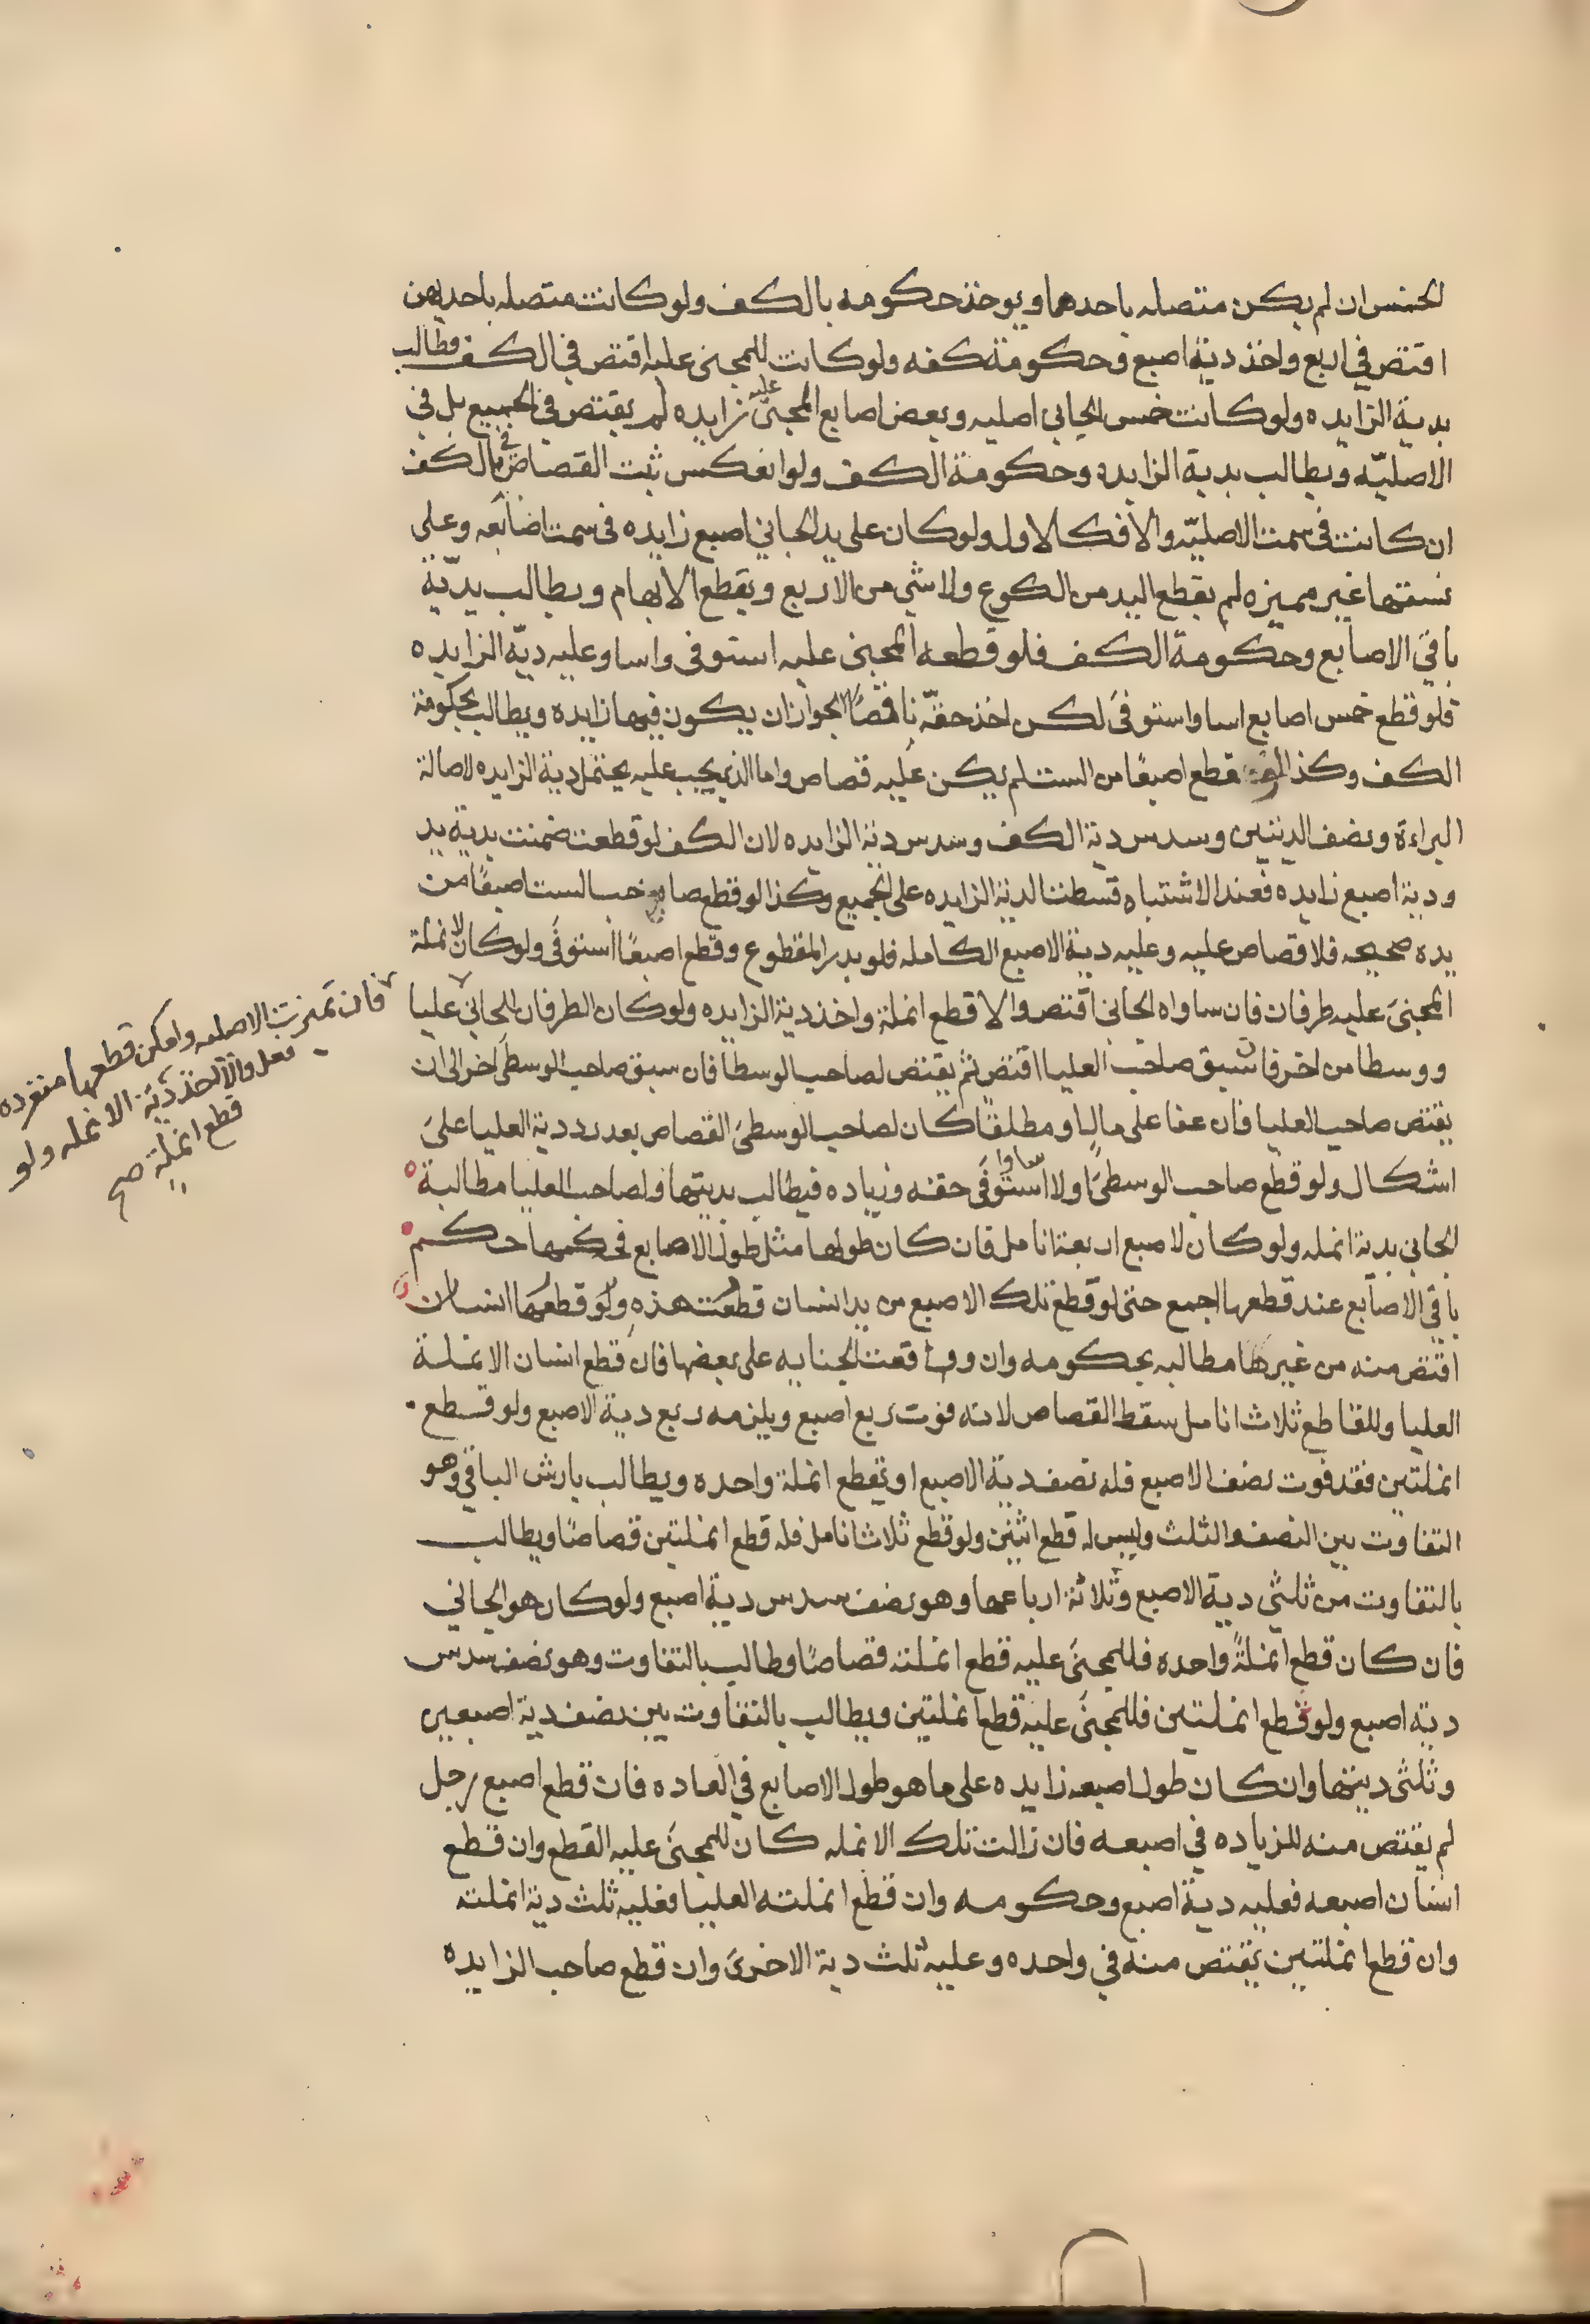 الخمس ان لم يكن متصله باحدهما ويوخذ حكومه بالكف ولو كانت متصله باحديهن
اقتص في اربع واخذ دية اصبع وحكومة كفه ولو كانت للمجنى عليه اقتص في الكف وطالب
بدية الزايده ولو كانت خمس الجاني اصليه وبعض اصابع المجنى عليه زايده لم يقتص في الجميع بل في
الاصليّه ويطالب بدية الزايده وحكومة الكف ولو انعكس ثبت القصاص في الكف
ان كانت في سمت الاصليّه والا فكالاول ولو كان على يد الجاني اصبع زايده في سمت اصابعه وعلى
نسقها غير مميزه لم يقطع اليد من الكوع ولا شي من الاربع ويقطع الابهام ويطالب بديّة
باقي الاصابع وحكومة الكف فلو قطعه المجنى عليه استوفى واسا وعليه ديّه الزايده
فلو قطع خمس اصابع اسا واستوفى لكن اخذ حقّه ناقصًا لجواز ان يكون فيها زايده ويطالب بحكومة
الكف وكذا لو قطع اصبعًا من الست لم يكن عليه قصاص واما الذي يجب عليه يحتمل دية الزايده لاصالة
البراءة ونصف الديتين وسدس دية الكف وسدس دية الزايده لان الكف لو قطعت ضمنت بدية يد
ودية اصبع زايده فعند الاشتباه قسطت الدية الزايده على الجميع وكذا لو قطع صاحب الست اصبعًا من
يده صحيحه فلا قصاص عليه وعليه دية الاصبع الكامله فلو بدر المقطوع وقطع اصبعًا استوفى ولو كان لانملة
المجنى عليه طرفان فان ساواه الجاني اقتص والا قطع انملة واخذ دية الزايده ولو كان الطرفان للجاني عليا
فان تميزت الاصليه وامكن قطعها منفرده
فعل والا اخذ دية الانمله ولو
قطع انملة صح
ووسطا من اخر فان سبق صاحب العليا اقتص ثم يقتص لصاحب الوسطا فان سبق صاحب الوسطى اخر الى ان
يقتص صاحب العليا فان عفا على مال او مطلقًا كان لصاحب الوسطى القصاص بعد رد دية العليا على
اشكال ولو قطع صاحب الوسطى اولا اساوا استوفى حقه وزياده فيطالب بديتها ولصاحب العليا مطالبة
الجاني بدية انمله ولو كان لاصبع اربعة انامل فان كان طولها مثل طول الاصابع فحكمها حكم
باقي الاصابع عند قطعها اجمع حتى لو قطع تلك الاصبع من يد انسان قطعت هذه ولو قطعها انسان
اقتص منه من غير مطالبه بحكومه وان وقعت الجنايه على بعضها فان قطع انسان الانملة
العليا وللقاطع ثلاث انامل سقط القصاص لانه فوت ربع اصبع ويلزمه ربع دية الاصبع ولو قطع
انملتين فقد فوت نصف الاصبع فله نصف دية الاصبع او يقطع انملة واحده ويطالب بارش الباقي وهو
التفاوت بين النصف والثلث وليس له قطع اثنين ولو قطع ثلاث انامل فله قطع انملتين قصاصًا ويطالب
بالتفاوت من ثلثي دية الاصبع وثلاثة ارباعها وهو نصف سدس دية اصبع ولو كان هو الجاني
فان كان قطع انملةً واحده فللمجنى عليه قطع انملته قصاصًا وطالب بالتفاوت وهو نصف سدس
دية اصبع ولو قطع انملتين فللمجنى عليه قطع انملتين ويطالب بالتفاوت بين نصف دية اصبعين
وثلثي ديتها وان كان طول اصبعه زايده على ما هو طول الاصابع في العاده فان قطع اصبع رجل
لم يقتص منه للزياده في اصبعه فان زالت تلك الانمله كان للمجنى عليه القطع وان قطع
انسان اصبعه فعليه دية اصبع وحكومه وان قطع انملته العليا فعليه ثلث دية انملته
وان قطع انملتين يقتص منه في واحده وعليه ثلث دية الاخرى وان قطع صاحب الزايده